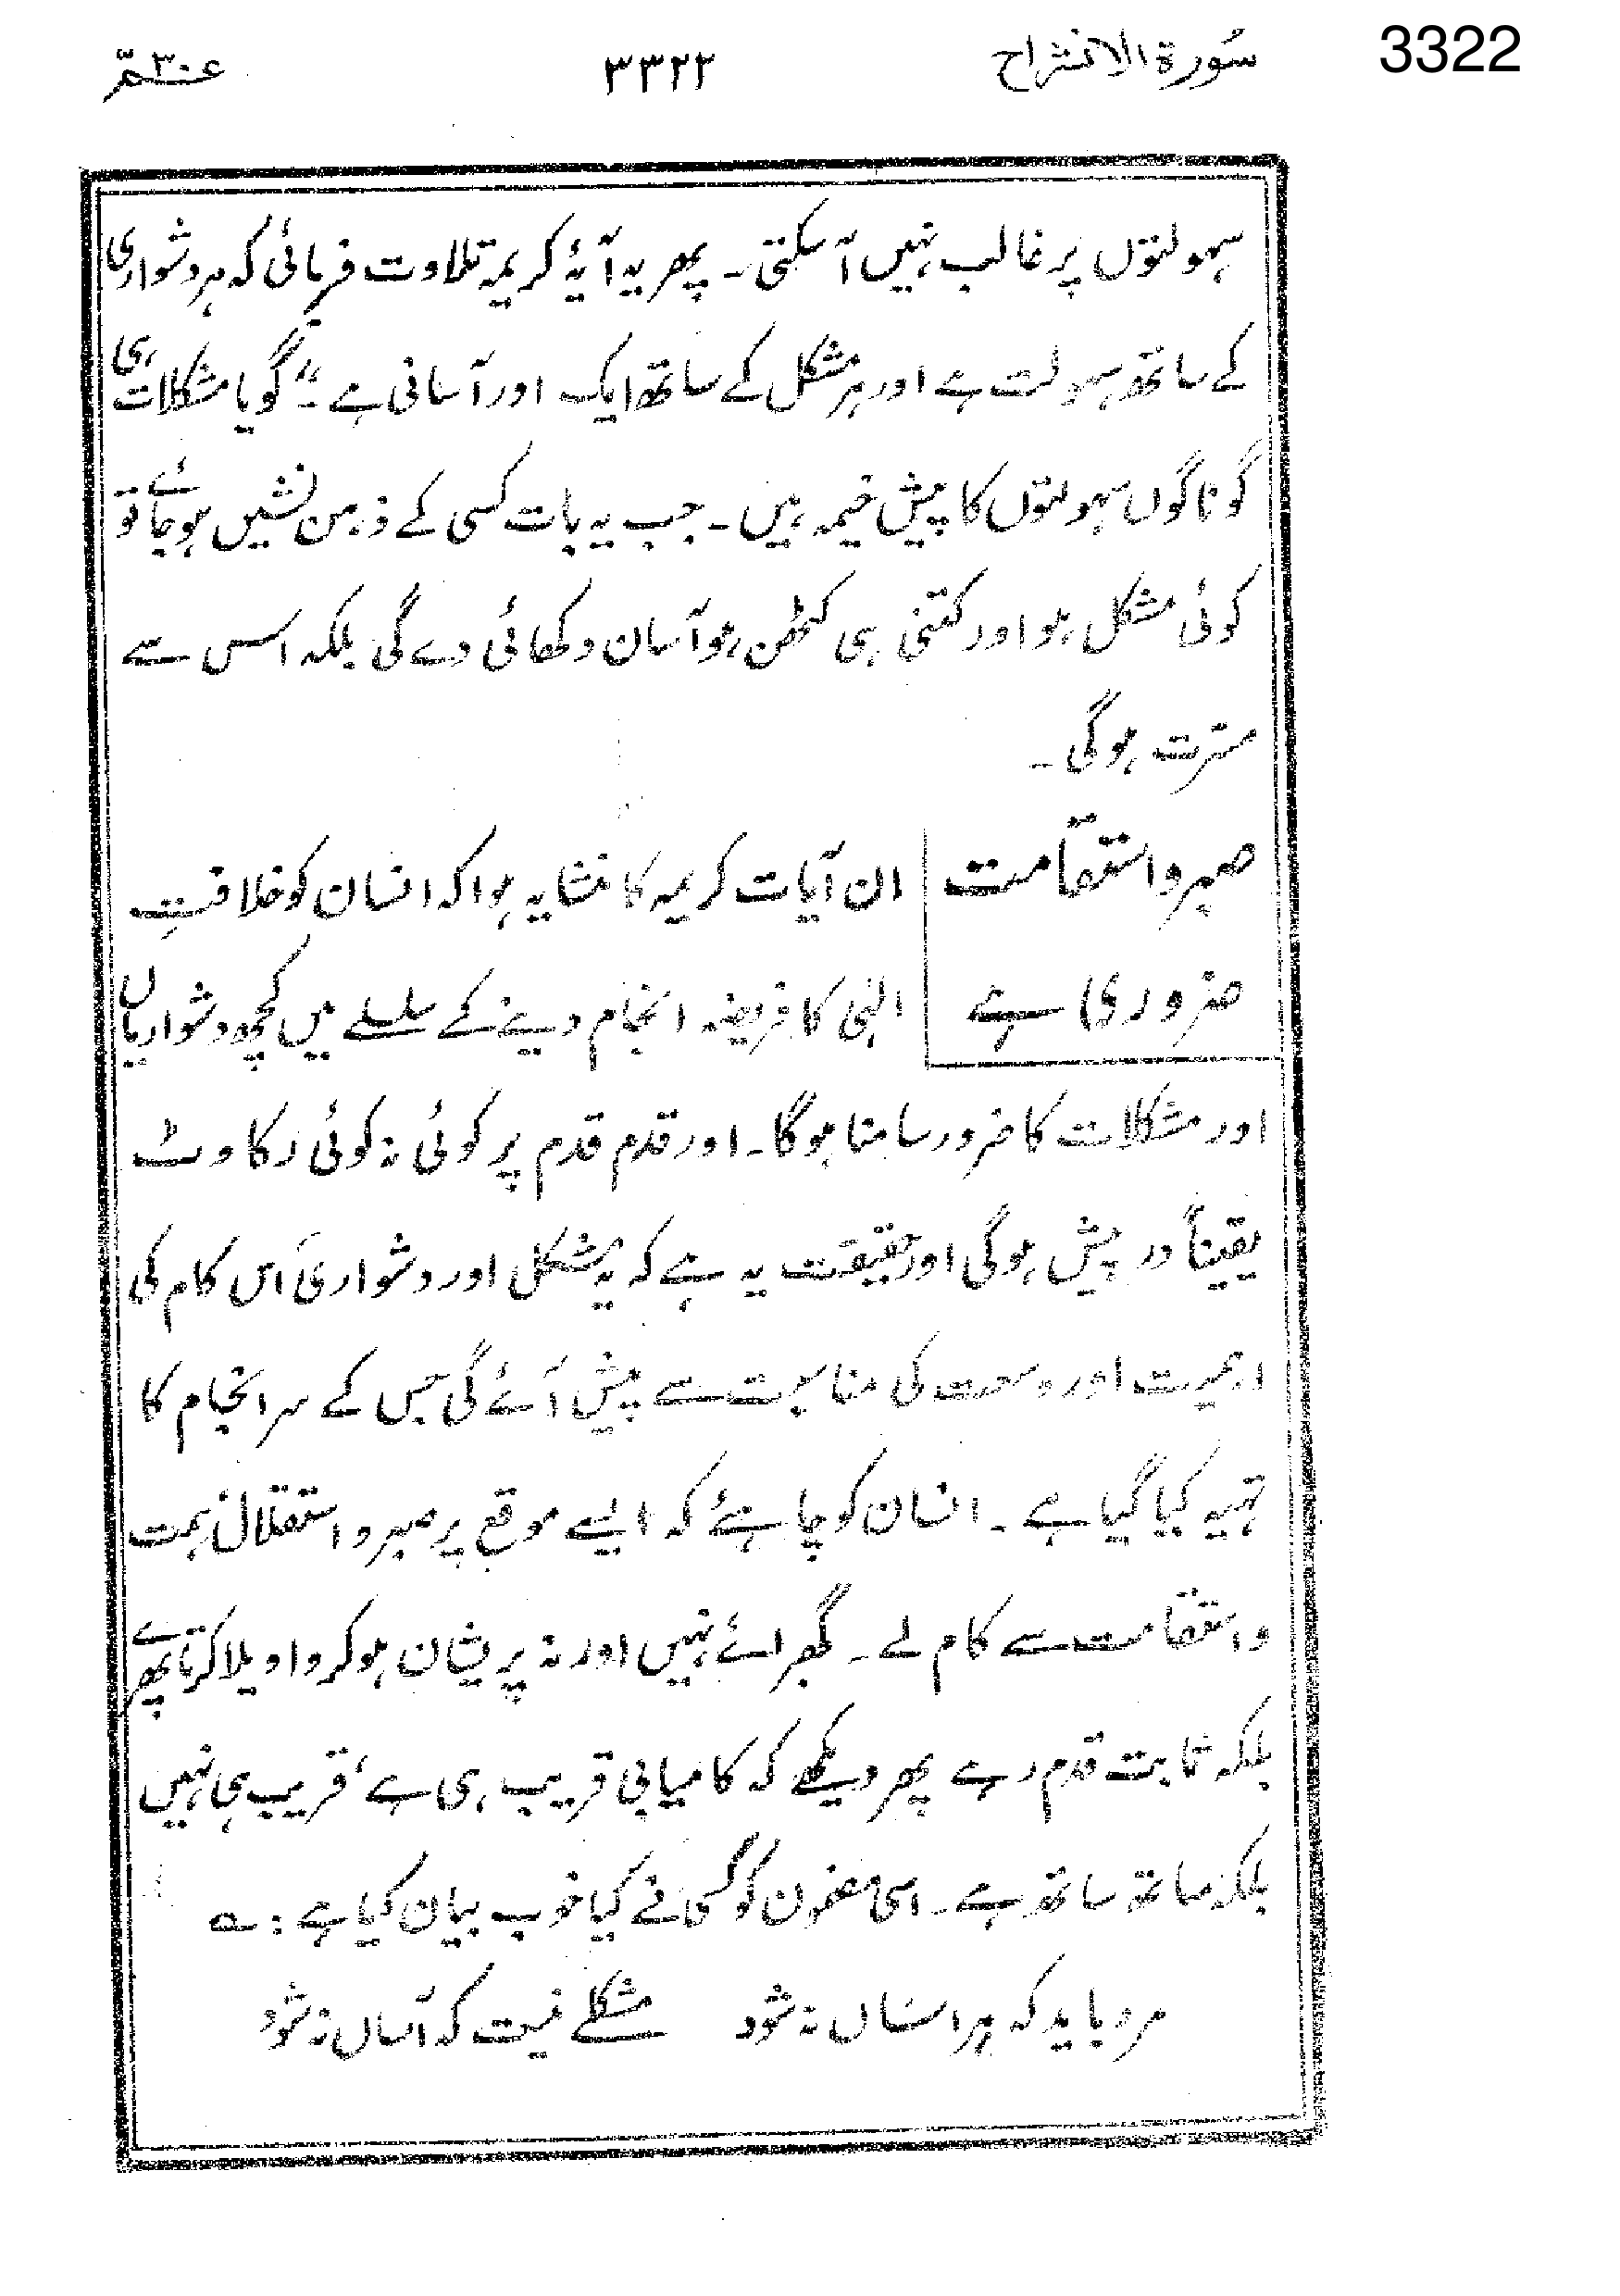 3322
سُورة الانشراح
۳۳۲۲
عمّ ۳۰
سہولتوں پر غالب نہیں آ سکتی۔ پھر یہ آیۂ کریمہ تلاوت فرمائی کہ ہر دشواری
کے ساتھ سہولت ہے اور ہر مشکل کے ساتھ ایک اور آسانی ہے۔" گویا مشکلات ہی
گوناگوں سہولتوں کا پیش خیمہ ہیں۔ جب یہ بات کسی کے ذہن نشیں ہو جائے تو
کوئی مشکل ہو اور کتنی ہی کٹھن ہو آسان دکھائی دے گی بلکہ اس سے
مسرّت ہوگی۔
صبر و استقامت
ضروری ہے
ان آیات کریمہ کا منشا یہ ہوا کہ انسان کو خلافتِ
الہٰی کا فریضہ انجام دینے کے سلسلے میں کچھ دشواریاں
اور مشکلات کا ضرور سامنا ہوگا۔ اور قدم قدم پر کوئی نہ کوئی رکاوٹ
یقیناً در پیش ہوگی اور حقیقت یہ ہے کہ یہ مشکل اور دشواری اُس کام کی
اہمیت اور وسعت کی مناسبت سے پیش آئے گی جس کے سر انجام کا
تہیہ کیا گیا ہے۔ انسان کو چاہئے کہ ایسے موقع پر صبر و استقلال، ہمت
و استقامت سے کام لے۔ گھبرائے نہیں اور نہ پریشان ہو کر واویلا کرتا پھرے
بلکہ ثابت قدم رہے پھر دیکھے کہ کامیابی قریب ہی ہے، قریب ہی نہیں
بلکہ ساتھ ساتھ ہے۔ اسی مضمون کو کسی نے کیا خوب بیان کیا ہے: ؎
مرد باید کہ ہراساں نہ شود مشکلے نیست کہ آساں نہ شود